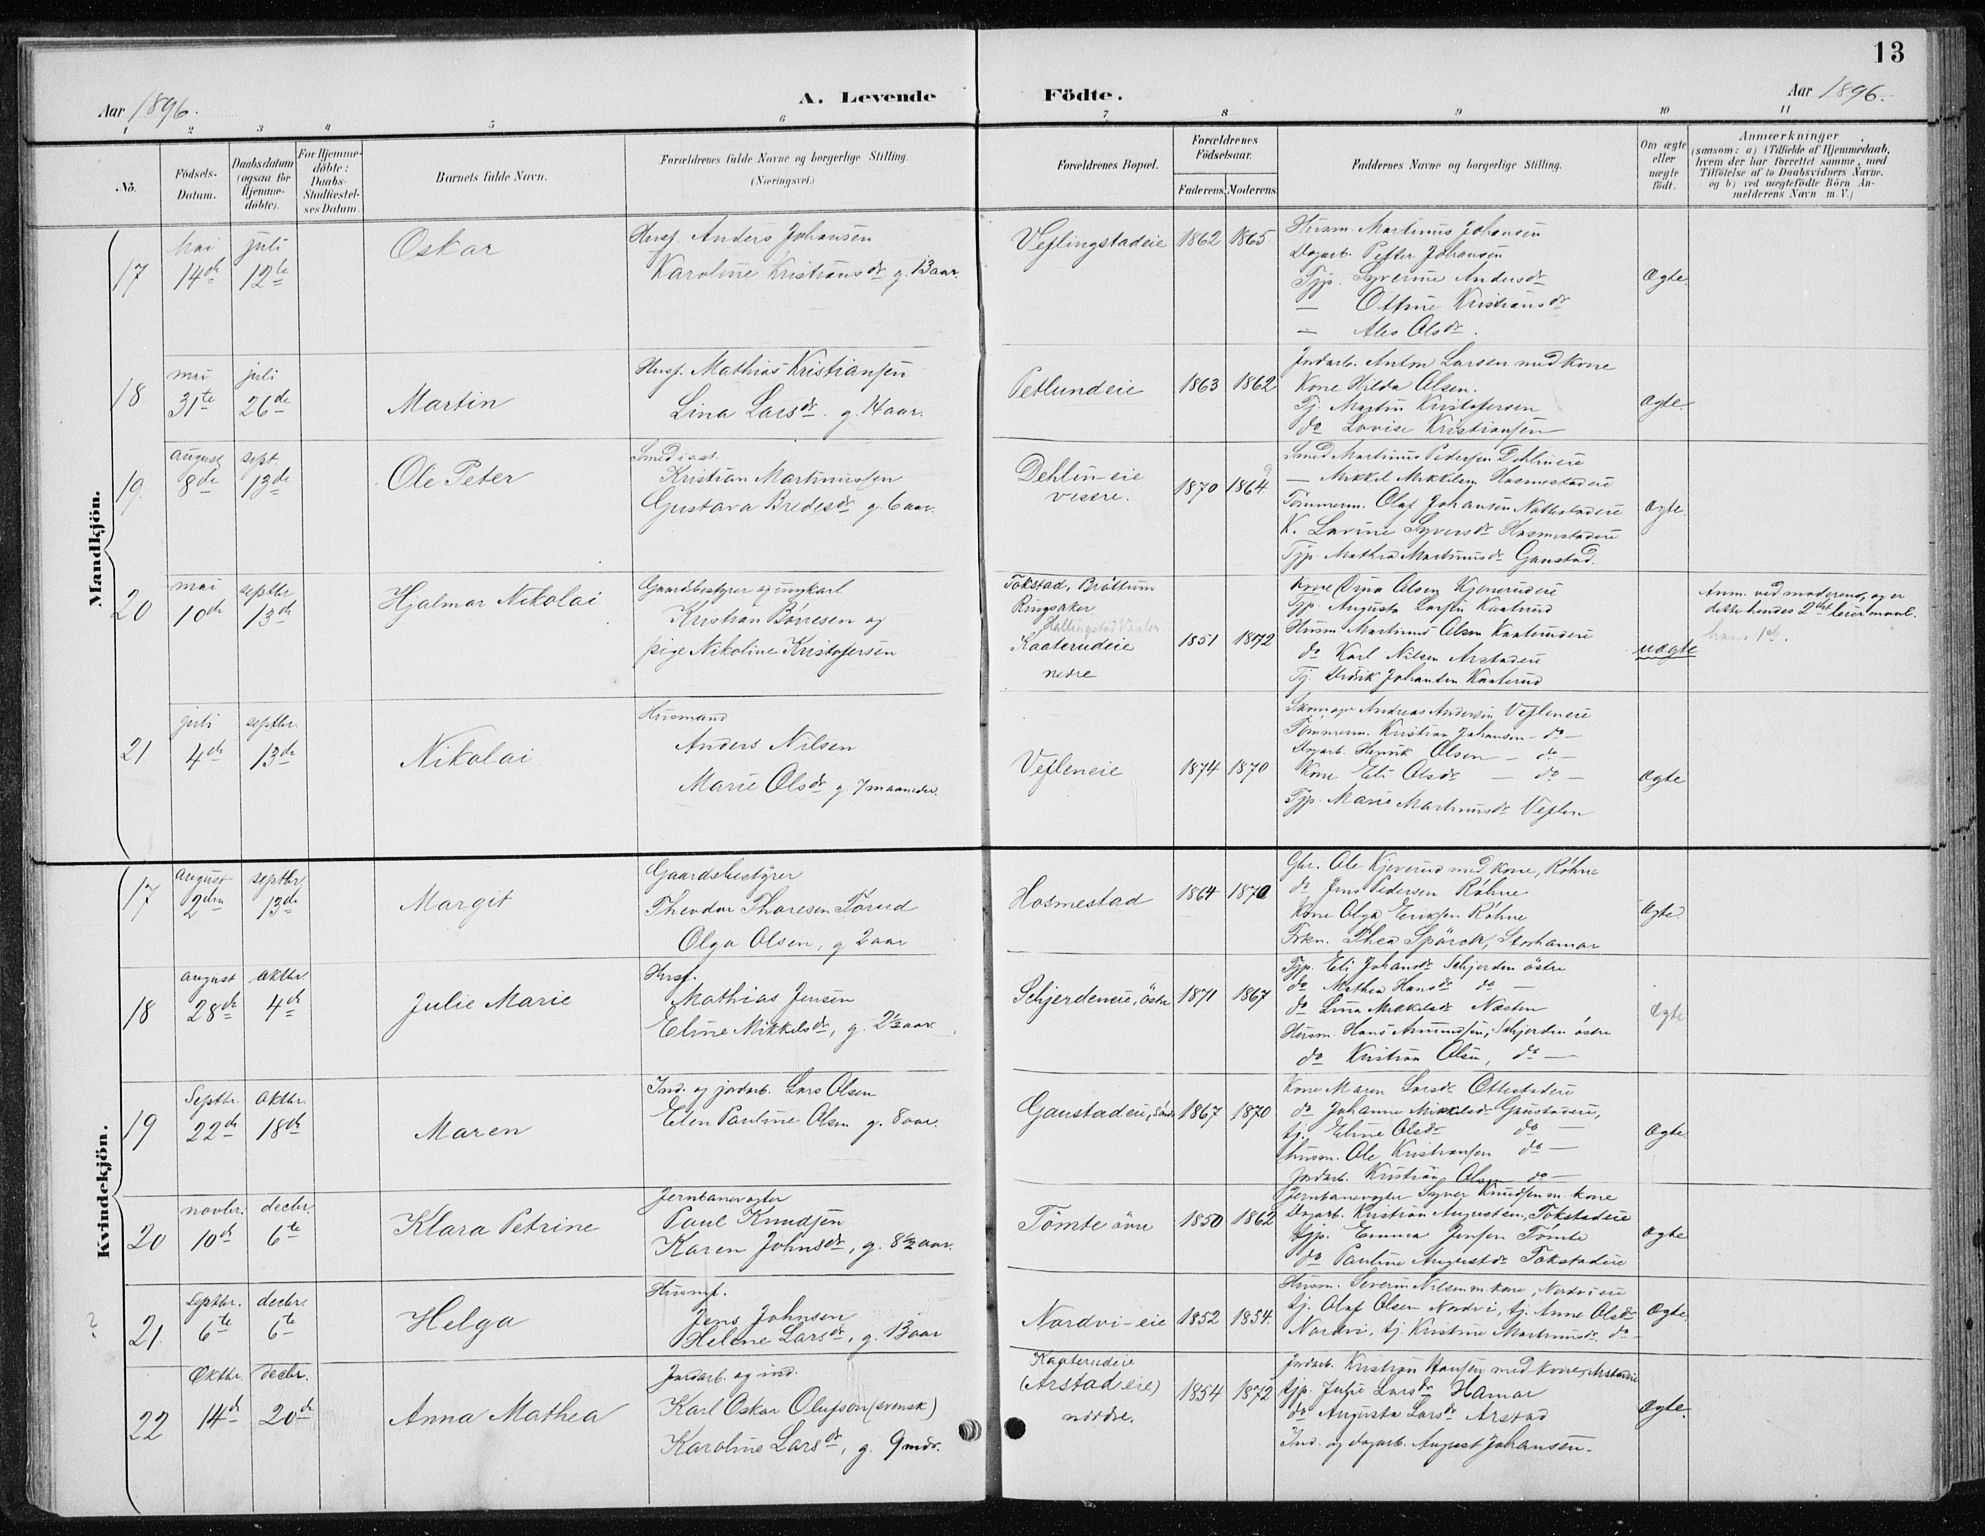 13
Aar 1896.
A. Levende
Födte.
Aar 1896.
1 2 3 4 5 6 7 8 9 10 11
No.
Födsels-Datum.
Daabsdatum (ogsaa for Hjemme-döbte).
For Hjemme-döbte: Daabs-Stadfæstel-ses Datum.
Barnets fulde Navn.
Forældrenes fulde Navne og borgerlige Stilling. (Næringsvei.)
Forældrenes Bopæl.
Forældrenes Födselsaar.
Faderens. Moderens.
Faddernes Navne og borgerlige Stilling.
Om ægte eller uægte födt.
Anmærkninger
(saasom: a) i Tilfælde af Hjemmedaab, hvem der har forrettet samme, med Tilföielse af to Daabsvidners Navne. og b) ved uægtefödte Börn An-melderens Navn m. V.)
Mandkjön.
17
mai 14de
juli 12te
Oskar
Husf. Anders Johansen
Karoline Kristiansdr g. 13 aar.
Vejlingstadeie
1862 1865
Husm. Martinus Johansen
Dagarb. Petter Johansen
Tjp. Syverine Andersdr
— Ottine Kristiansdr
— Ales Olsdr.
Ægte.
18
mai 31te
juli 26de
Martin
Husf. Mathias Kristiansen
Lina Larsdr. g. 14 aar.
Petlundeie
1863 1862
Jordarb. Anton Larsen med kone
Kone Hilda Olsen.
Tj. Martin Kristofersen
do Lovise Kristiansen
Ægte.
19.
august 8de
sept. 13de
Ole Peter
Smed i s.st.
Kristian Martinussen
Gustava Bredesdr g. 6 aar.
Dehlin-eie
vestre.
1870 1864
Smed Martinus Pedersen Dehlineie
— Mikkel Mikkelsen Hosmestadeie
Tømmerm. Olaf Johansen Nattestadeie
K. Lavine Syversdr Hosmestadeie
Tjp. Mathea Martinusdr Gaustad.
Ægte.
20
mai 10de
septbr 13de
Hjalmar Nikolai
Gaardsbestyrer og ungkarl
Kristian Børresen og
pige Nikoline Kristofersen
Tokstad, Brøttum
Ringsaker
Kaaterudeie
nedre
1851 1872
Kone Olsen Kjeverudeie
Tjp. Augusta Larsen Kaaterud
Husm. Martinus Olsen Kaaterudeie
do Karl Nilsen Arstadeie
Tj. Johansen Kaaterud
uægte
Anm. ved moderens, og er
dette hendes 2det leiermaal.
hans 1ste.
21
juli 4de
septbr. 13de
Nikolai
Husmand
Anders Nilsen
Marie Olsdr g 7 maaneder.
Vejleneie
1874 1870
Skomager Andreas Andersen Vejleneie
Tømmerm. Kristian Johansen - do -
Dagarb. Henrik Olsen - do -
Kone Eli Olsdr - do -
Tjp. Marie Martinusdr Vejlen
Ægte
Kvindekjön.
17
august 2den
septbr. 13de
Margit
Gaardsbestyrer
Theodor Thoresen Torud
Olga Olsen, g 2 aar
Hosmestad
1864 1870
Gbr. Ole Kjeverud med kone, Røhne
do Jens Pedersen Røhne
Kone Olga Eriksen Røhne
Frkn. Thea Spørck, Storhamar
Ægte
18
august 28de
oktbr. 4de
Julie Marie
Husf.
Mathias Jensen
Eline Mikkelsdr, g. 2½ aar.
Schjerdeneie, østre
1871 1867
Tjp. Eli Johansdr Schjerden østre
do Mathea Hansdr do —
do Lina Mikkelsdr Næsten
Husm. Hans Amundsen, Schjerden østre
do Kristian Olsen, do —
Ægte
19
Septbr. 22de
Oktbr. 18de
Maren
Ind. og jordarb. Lars Olsen
Elen Pauline Olsen g. 8 aar.
Gaustadeie, søndr
1867 1870
Kone Maren Larsdr Ottestadeie
do Johanne Mikkelsdr Gaustadeie,
tj. Eline Olsdr do —
husm. Ole Kristiansen do —
Jordarb. Kristian Olsen do —
Ægte.
20
novbr. 10de
decbr. 6te
Klara Petrine
Jernbanevogter
Paul Knudsen
Karen Johnsdr, g. 8½ aar.
Tömte övre
1850 1862
Jernbanevogter Syver Knudsen m. kone
Dagarb. Kristian Augustsen, Tokstadeie
tjp. Emma Jensen Tomte
do Pauline Augustsdr Tokstadeie
Ægte
?
21.
Septbr. 6te
decbr. 6te
Helga
Husmf.
Jens Johnsen
Helene Larsdr, g. 13 aar
Nordvi-eie
1852 1854.
Husm. Severin Nilsen m kone, Nordvieie
tj. Olaf Olsen Nordvi, tj. Anne Olsdr
Nordvi, tj. Kristine Martinusdr, do —
Ægte.
22
Oktbr. 14de
decbr. 20de
Anna Mathea
Jordarb. og ind.
Karl Oskar Olufson (svensk)
Karoline Larsdr, g. 9 mdr.
Kaaterudeie
(Arstadeie)
nordre.
1854 1872
Jordarb. Kristian Hansen med kone, Arstadeie
tjp. Julie Larsdr Hamar
do Augusta Larsdr Arstad
Ind. og dagarb. August Johansen.
Ægte.